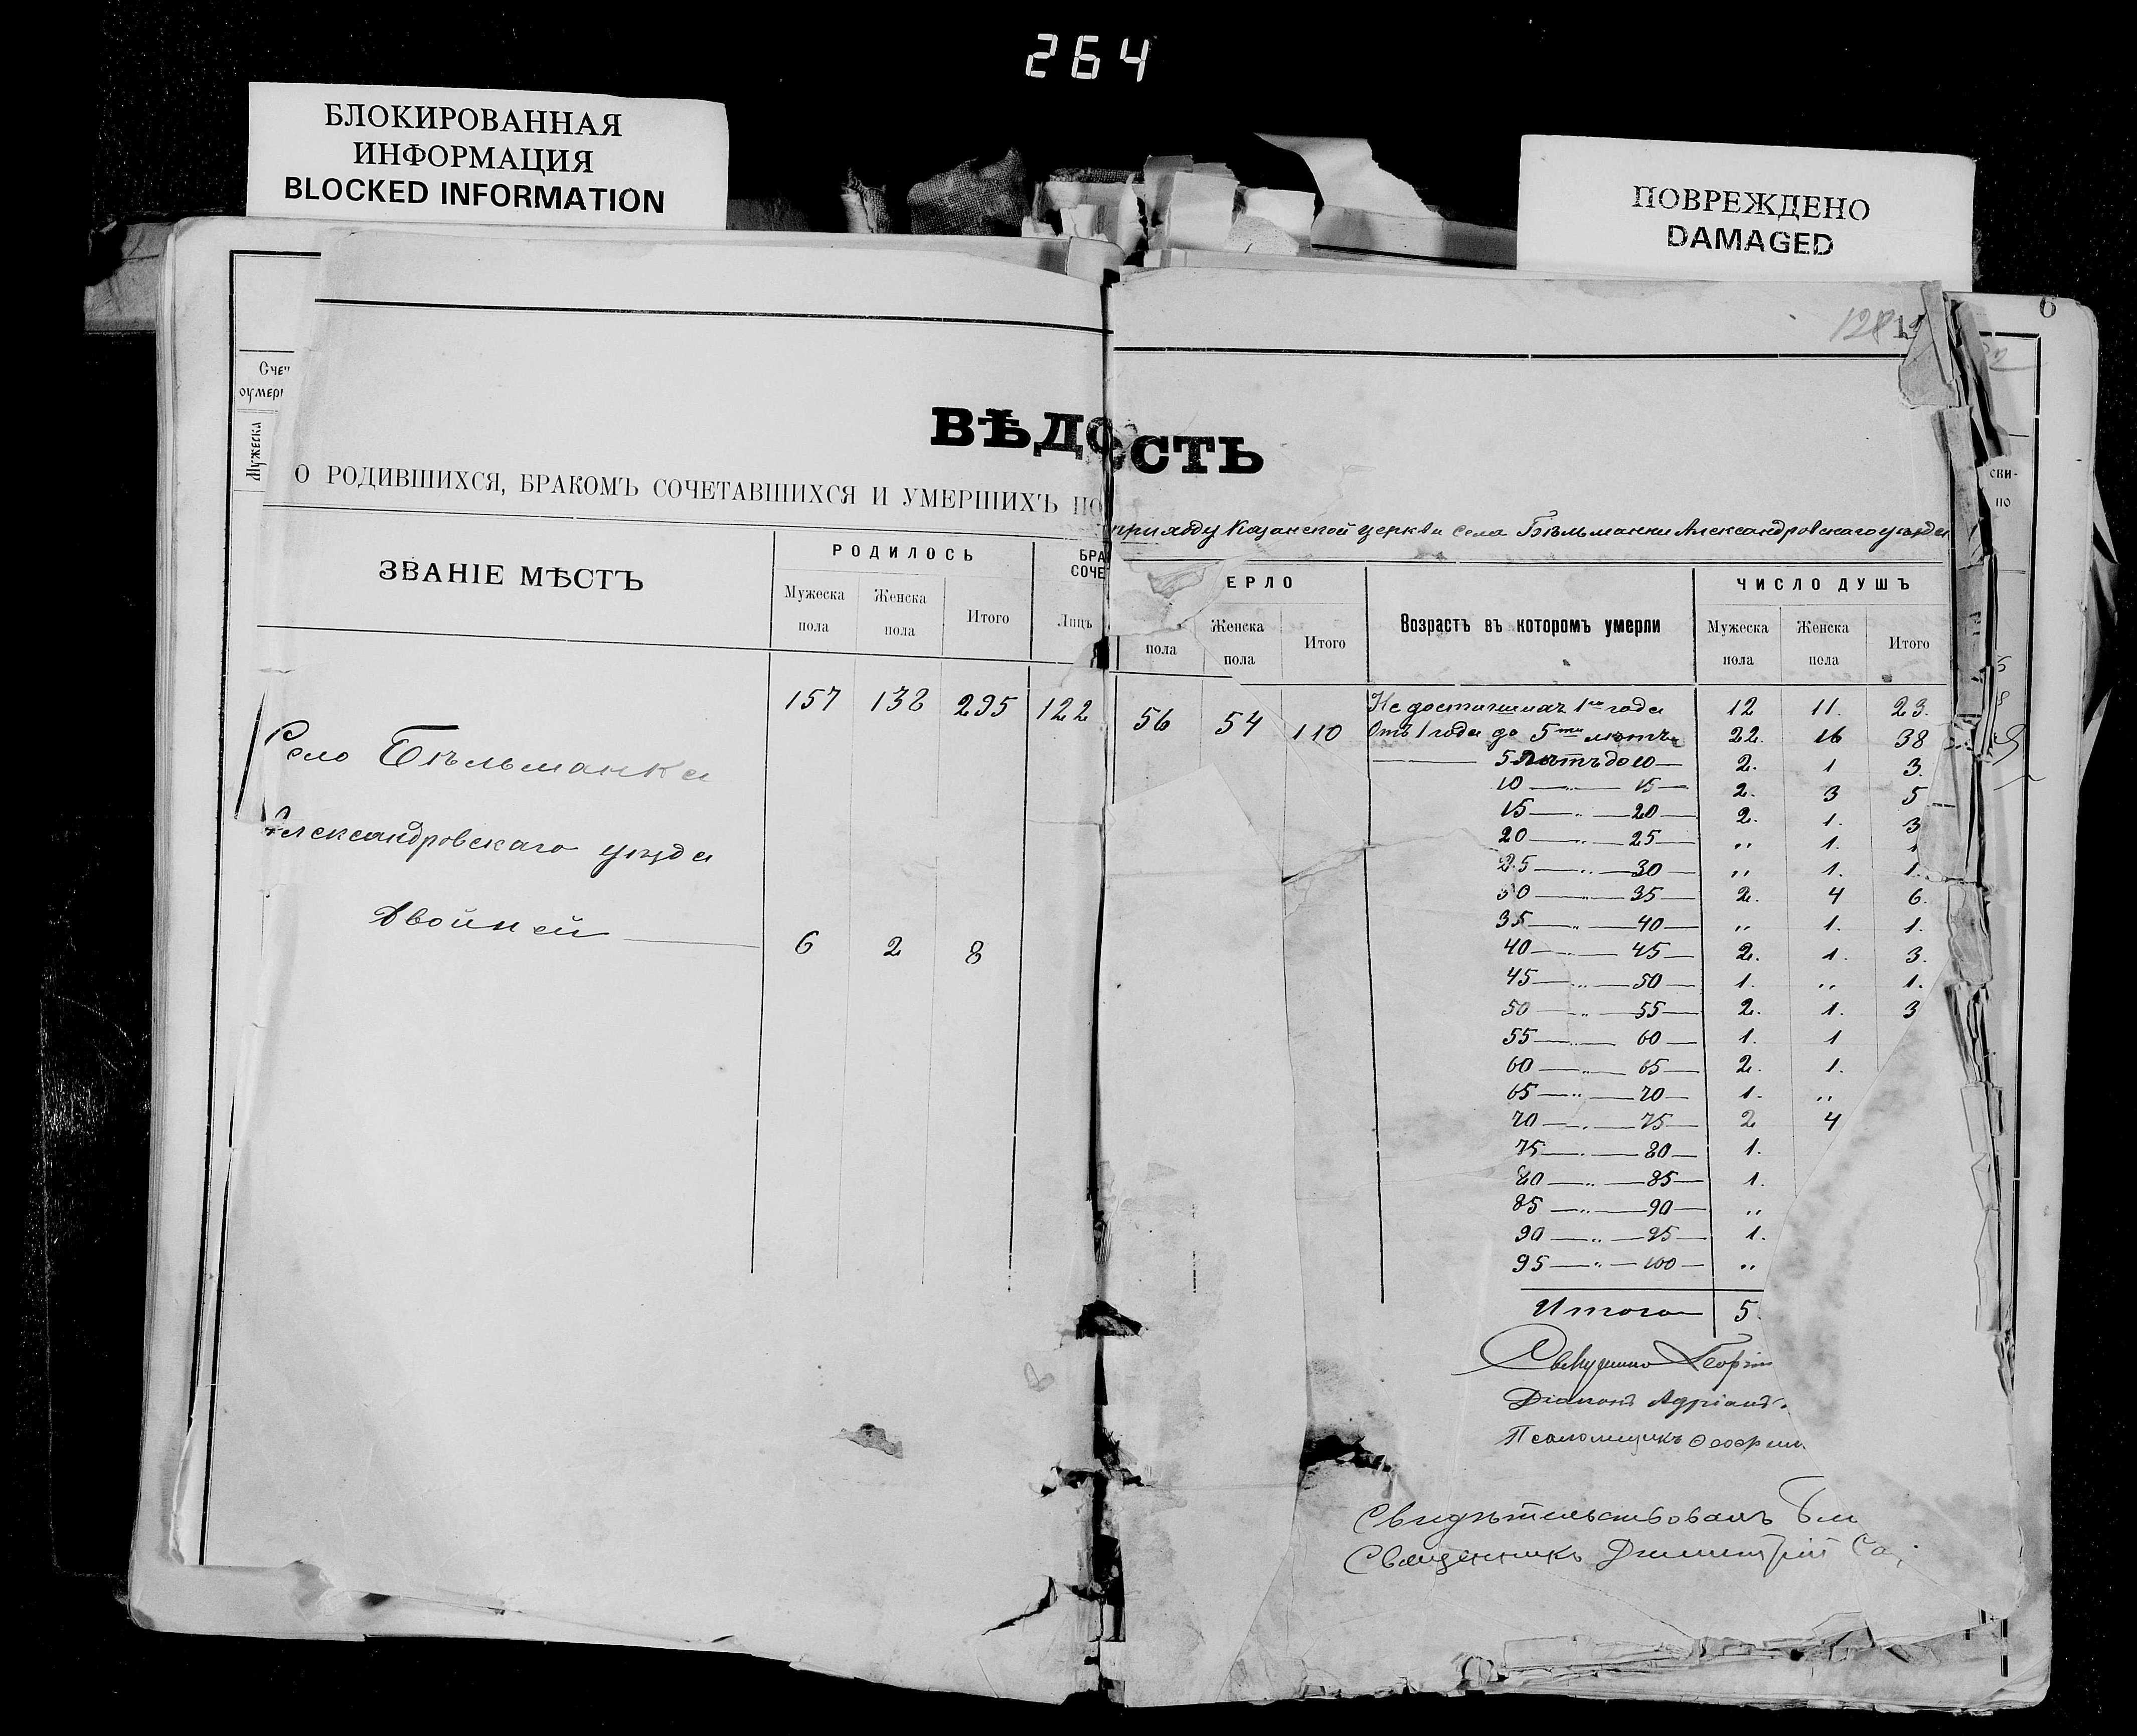 264
БЛОКИРОВАННАЯ
ИНФОРМАЦИЯ
BLOCKED INFORMATION
ПОВРЕЖДЕНО
DAMAGED
128
6
Счет
оумер
Мужеска
ВѢДОСТЬ
О РОДИВШИХСЯ, БРАКОМЪ СОЧЕТАВШИХСЯ И УМЕРШИХЪ ПО
приходу Казанской церкви села Бѣльманки Александровскаго уѣзда
ЗВАНІЕ МѢСТЪ
РОДИЛОСЬ
Мужеска пола
Женска пола
Итого
БРА
СОЧЕ
Лицъ
ЕРЛО
пола
Женска пола
Итого
Возрастъ въ которомъ умерли
ЧИСЛО ДУШЪ
Мужеска пола
Женска пола
Итого
сви-
но
Село Бѣльманка
Александровскаго уѣзда
157 138 295 122
56 54 110
Двойней — 6 2 8
Не достигшихъ 1го года 12 11. 23.
Отъ 1 года до 5ти лѣтъ 22. 16 38
— 5 лѣтъ до 10 — 2. 1 3.
10 — „ — 15 — 2. 3 5
15 — „ — 20 — 2. 1. 3
20 — „ — 25 — „ 1. 1
25 — „ — 30 — „ 1. 1.
30 — „ — 35 — 2. 4 6.
35 — „ — 40 — „ 1. 1.
40 — „ — 45 — 2. 1. 3.
45 — „ — 50 — 1. „ 1.
50 — „ — 55 — 2. 1. 3
55 — „ — 60 — 1. 1
60 — „ — 65 — 2. 1.
65 — „ — 70 — 1. „
70 — „ — 75 — 2 4
75 — „ — 80 — 1.
80 — „ — 85 — 1.
85 — „ — 90 — „
90 — „ — 95 — 1.
95 — „ — 100 — „
Итого 5
Георгій
Діаконъ Адріанъ
Псаломщикъ
Свидѣтельствовалъ Бл
Священникъ Димитрій Са